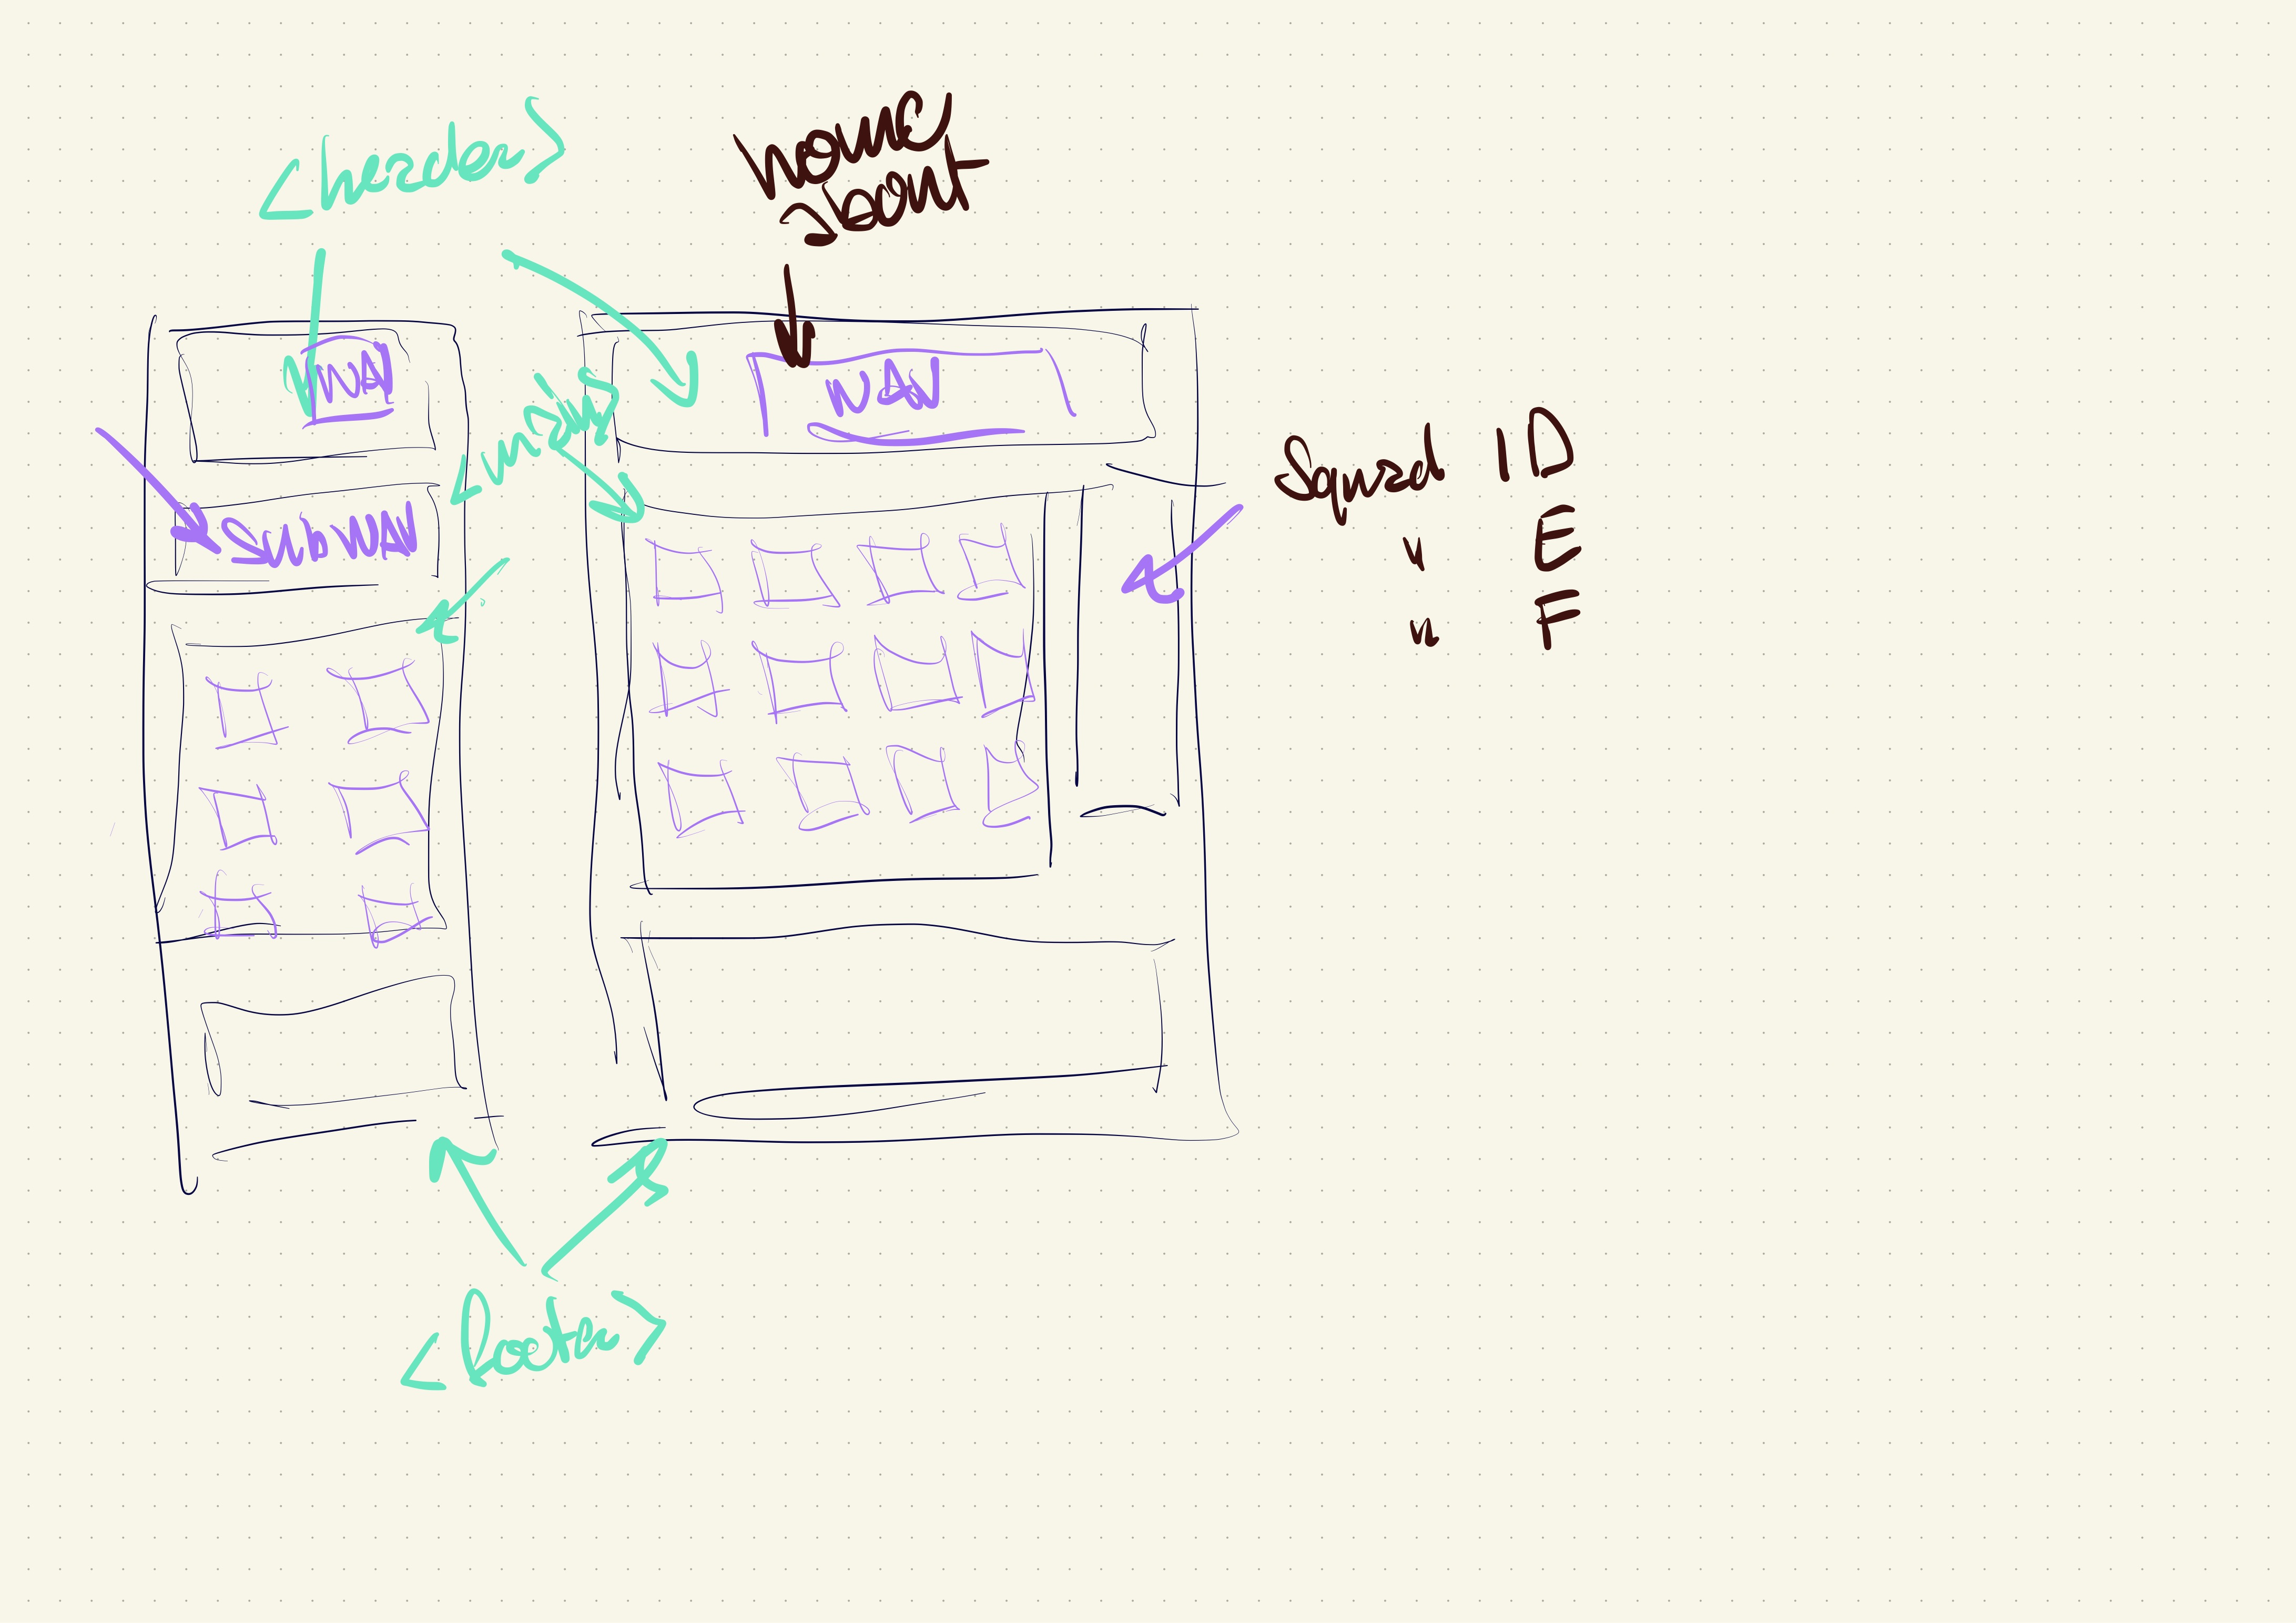 <header>
home
about
NAV
NAV
<main>
SUBNAV
Squad 1D
" E
" F
<footer>